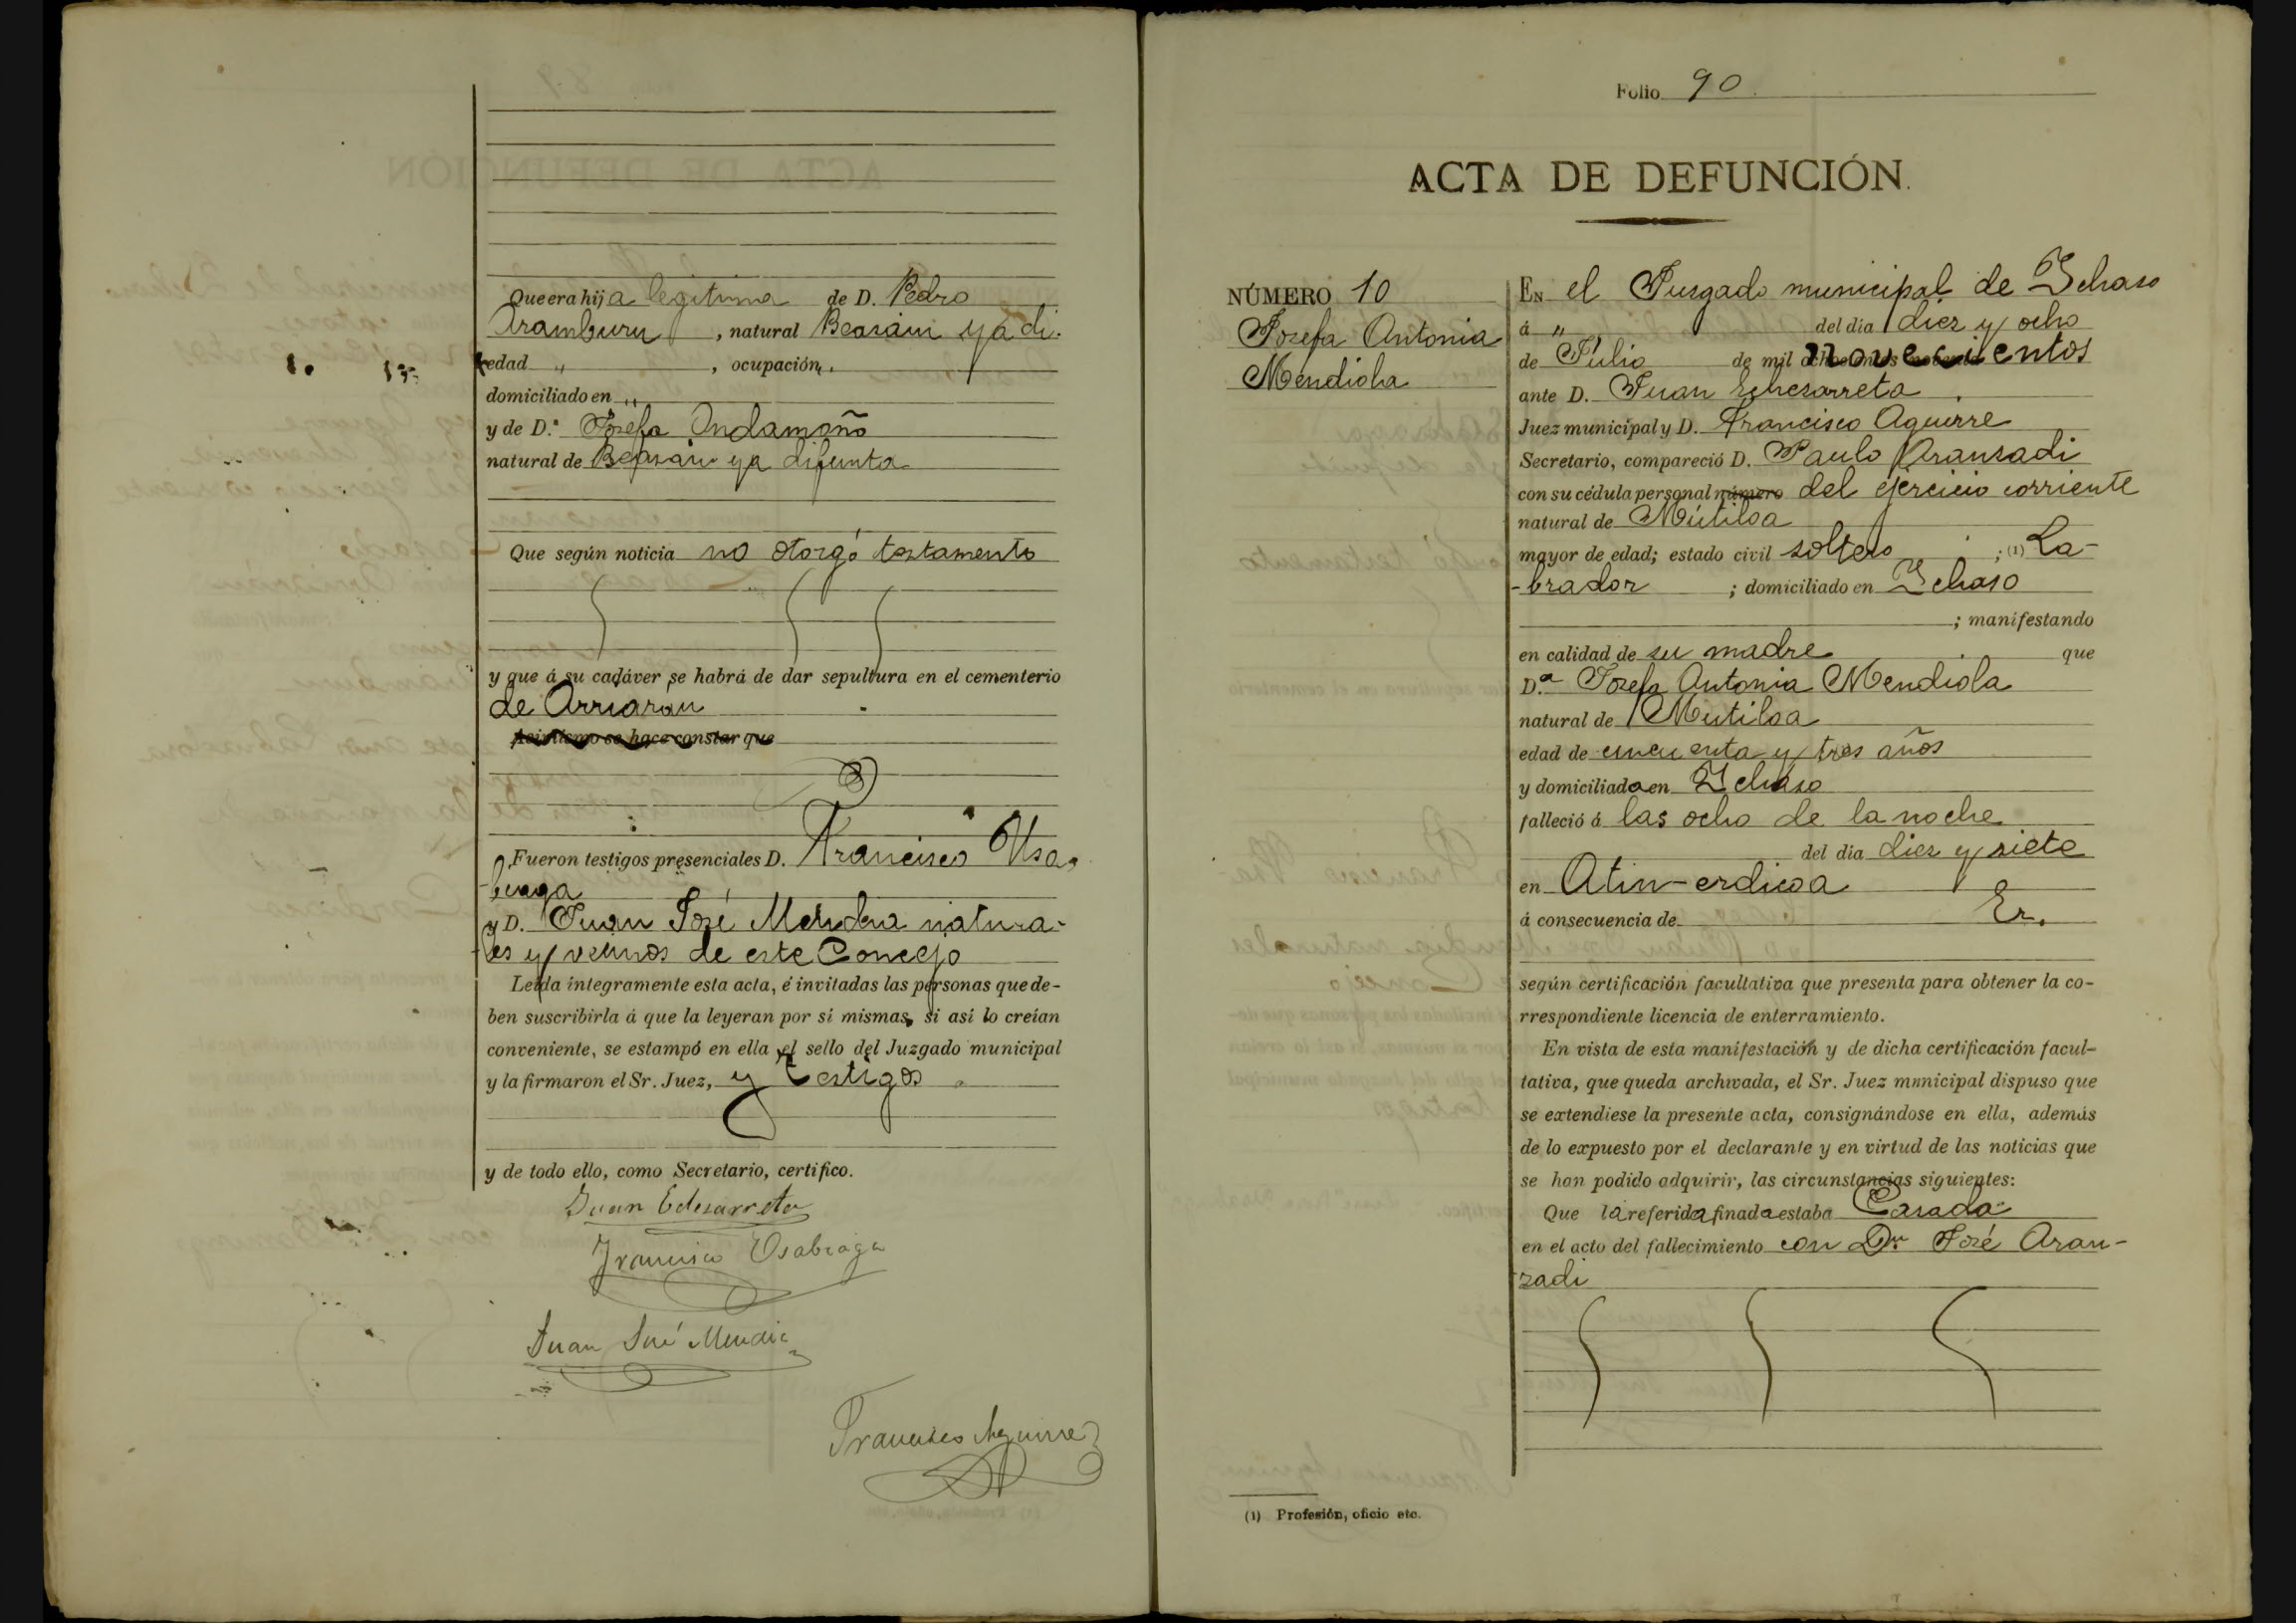 Que era hija legitima de D. Pedro
Aramburu, natural Beasain ya di-
edad " , ocupación "
domiciliado en "
y de D.ª Josefa Ondamoño
natural de Beasain ya difunta
Que según noticia no otorgó testamento
y que á su cadáver se habrá de dar sepultura en el cementerio
de Arriaran
Asimismo se hace constar que
Fueron testigos presenciales D. Francisco Usa-
-biaga
y D. Juan José Mendia natura-
-les y vecinos de este Concejo
Leída íntegramente esta acta, é invitadas las personas que de-
ben suscribirla á que la leyeran por sí mismas, si así lo creían
conveniente, se estampó en ella el sello del Juzgado municipal
y la firmaron el Sr. Juez, y testigos
y de todo ello, como Secretario, certifico.
Juan Echezarreta
Francisco Usabiaga
Juan José Mendia
Francisco Aguirre
Folio 90
ACTA DE DEFUNCIÓN.
NÚMERO 10
Josefa Antonia
Mendiola
EN el Juzgado municipal de Ichaso
á " del día diez y ocho
de Julio de mil novecientos
ante D. Juan Echezarreta
Juez municipal y D. Francisco Aguirre
Secretario, compareció D. Paulo Aranzadi
con su cédula personal número del ejercicio corriente
natural de Mútiloa
mayor de edad; estado civil soltero ; (1) La-
-brador ; domiciliado en Ichaso
; manifestando
en calidad de su madre que
D.ª Josefa Antonia Mendiola
natural de Mutiloa
edad de cincuenta y tres años
y domiciliada en Ichaso
falleció á las ocho de la noche
del día diez y siete
en Atin-erdicoa
á consecuencia de
según certificación facultativa que presenta para obtener la co-
rrespondiente licencia de enterramiento.
En vista de esta manifestación y de dicha certificación facul-
tativa, que queda archivada, el Sr. Juez municipal dispuso que
se extendiese la presente acta, consignándose en ella, además
de lo expuesto por el declarante y en virtud de las noticias que
se han podido adquirir, las circunstancias siguientes:
Que la referida finada estaba Casada
en el acto del fallecimiento con Dn José Aran-
zadi
(1) Profesión, oficio etc.